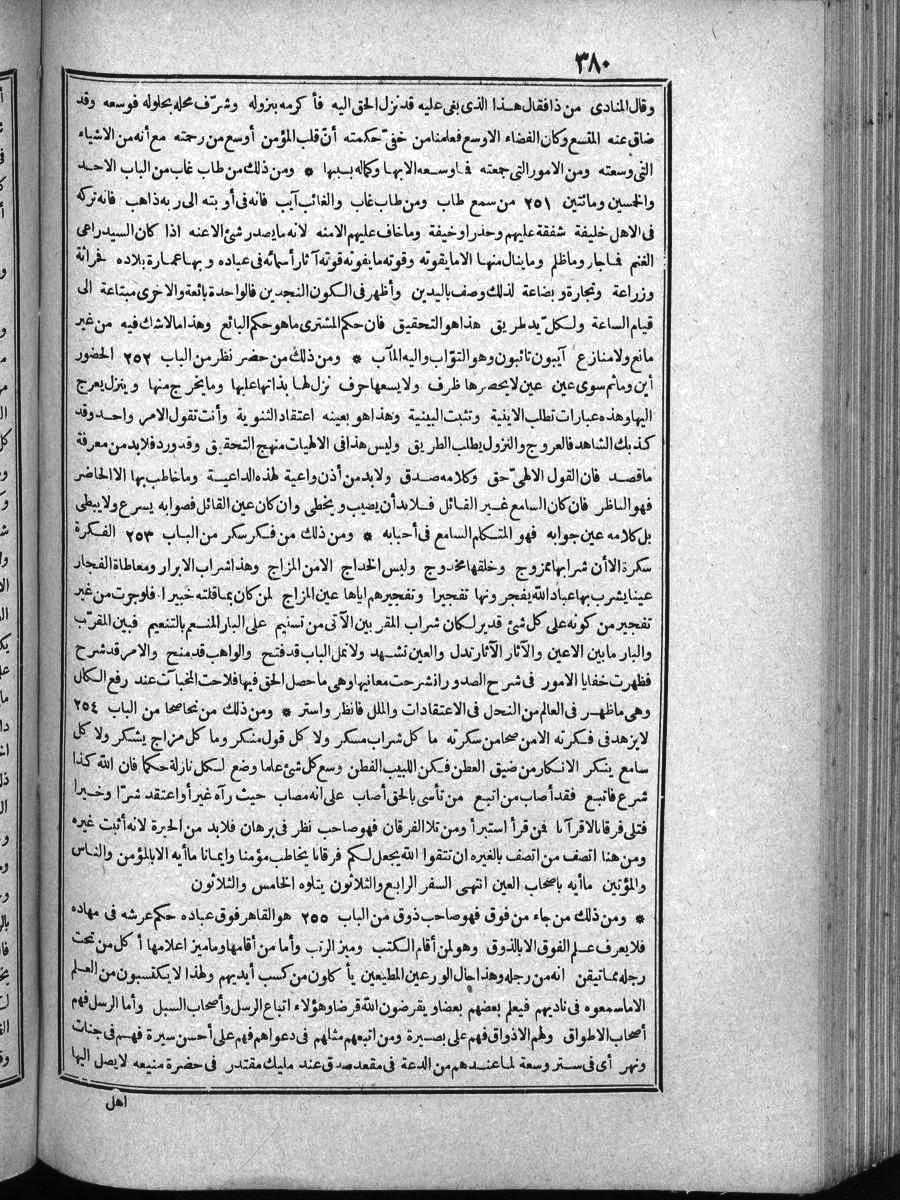 ٣٨٠
وقال المنادى من ذا فقال هذا الذى بغى عليه قد نزل الحق اليه فأكرمه بنزوله وشرّف محله بحلوله فوسعه وقد
ضاق عنه المتسع وكان الفضاء الاوسع فعلمنا من خفىّ حكمته أنّ قلب المؤمن أوسع من رحمته مع أنه من الاشياء
التى وسعته ومن الامور التى جمعته فما وسعه الا بها وكماله بسببها * ومن ذلك من طاب غاب من الباب الاحد
والخمسين ومائتين ٢٥١ من سمع طاب ومن طاب غاب والغائب آيب فانه فى أوبته الى ربه ذاهب فانه تركه
فى الاهل خليفة شفقة عليهم وحذرا وخيفة وما خاف عليهم الا منه لانه ما يصدر شئ الا عنه اذا كان السيد راعى
الغنم فما جار وما ظلم وما ينال منها الا ما يقوته وقوته ما يفوته قوته آثار أسمائه فى عباده وبها عمارة بلاده فحراثة
وزراعة وتجارة وبضاعة لذلك وصف باليدين وأظهر فى الكون النجدين فالواحدة بائعة والاخرى مبتاعة الى
قيام الساعة ولكل يد طريق هذا هو التحقيق فان حكم المشترى ما هو حكم البائع وهذا ما لا شك فيه من غير
مانع ولا منازع آيبون تائبون وهو التوّاب واليه المآب * ومن ذلك من حضر نظر من الباب ٢٥٢ الحضور
أين وما ثم سوى عين عين لا يحصرها ظرف ولا يسعها حرف نزل لها بذاتها عليها وما يخرج منها وينزل يعرج
اليها وهذه عبارات تطلب الاينية وتثبت البينية وهذا هو بعينه اعتقاد الثنوية وأنت تقول الامر واحد وقد
كذبك الشاهد فالعروج والنزول يطلب الطريق وليس هذا فى الالهيات منهج التحقيق وقد ورد فلا بد من معرفة
ما قصد فان القول الالهىّ حق وكلامه صدق ولا بد من أذن واعية لهذه الداعية وما خاطب بها الا الحاضر
فهو الناظر فان كان السامع غير القائل فلا بد أن يصيب ويخطى وان كان عين القائل فصوابه يسرع ولا يبطى
بل كلامه عين جوابه فهو المتكلم السامع فى أحبابه * ومن ذلك من فكر سكر من الباب ٢٥٣ الفكرة
سكرة الا أن شرابها ممزوج وخلقها مخدوج وليس الخداج الا من المزاج وهذا شراب الابرار ومعاطاة الفجار
عينا يشرب بها عباد الله يفجرونها تفجيرا وتفجيرهم اياها عين المزاج لمن كان بما قلته خبيرا فلو جرت من غير
تفجير من كونه على كل شئ قدير لكان شراب المقربين الآتى من تسنيم على البار المنعم بالتنعيم فبين المقرّب
والبار ما بين الاعين والآثار الآثار تدل والعين تشهد ولا تمل الباب قد فتح والواهب قد منح والامر قد شرح
فظهرت خفايا الامور فى شرح الصدور انشرحت معانيها وهى ما حصل الحق فيها فلاحت المخبآت عند رفع الكلل
وهى ما ظهر فى العالم من النحل فى الاعتقادات والملل فانظر واستر * ومن ذلك من نحا صحا من الباب ٢٥٤
لا يزهد فى فكرته الا من صحا من سكرته ما كل شراب مسكر ولا كل قول منكر وما كل مزاج يشكر ولا كل
سامع ينكر الانكار من ضيق العطن فكن اللبيب الفطن وسع كل شئ علما وضع لكل نازلة حكما فان الله كذا
شرع فاتبع فقد أصاب من اتبع من تأسى بالحق أصاب على انه مصاب حيث رآه غيرا واعتقد شرّا وخيرا
فتلى فرقانا لا قرآنا فمن قرأ استبرأ ومن تلا الفرقان فهو صاحب نظر فى برهان فلا بد من الحيرة لانه أثبت غيره
ومن هنا اتصف من اتصف بالغيره ان تتقوا الله يجعل لكم فرقانا يخاطب مؤمنا وايمانا ما أيه الا بالمؤمن والناس
والمؤتين ما أيه باصحاب العين انتهى السفر الرابع والثلاثون يتلوه الخامس والثلاثون
* ومن ذلك من جاء من فوق فهو صاحب ذوق من الباب ٢٥٥ هو القاهر فوق عباده حكم عرشه فى مهاده
فلا يعرف علم الفوق الا بالذوق وهو لمن أقام الكتب وميز الرتب وأما من أقامها وما ميز اعلامها أكل من تحت
رجله مما تيقن انه من رجله وهذا حال الورعين المطيعين يأكلون من كسب أيديهم ولهذا لا يكتسبون من العلم
الا ما سمعوه فى ناديهم فيعلم بعضهم بعضا ويقرضون الله قرضا وهؤلاء اتباع الرسل وأصحاب السبل وأما الرسل فهم
أصحاب الاطواق ولهم الاذواق فهم على بصيرة ومن اتبعهم مثلهم فى دعواهم فهم على أحسن سيرة فهم فى جنات
ونهر أى فى ستر وسعة لما عندهم من الدعة فى مقعد صدق عند مليك مقتدر فى حضرة منيعه لا يصل اليها
اهل